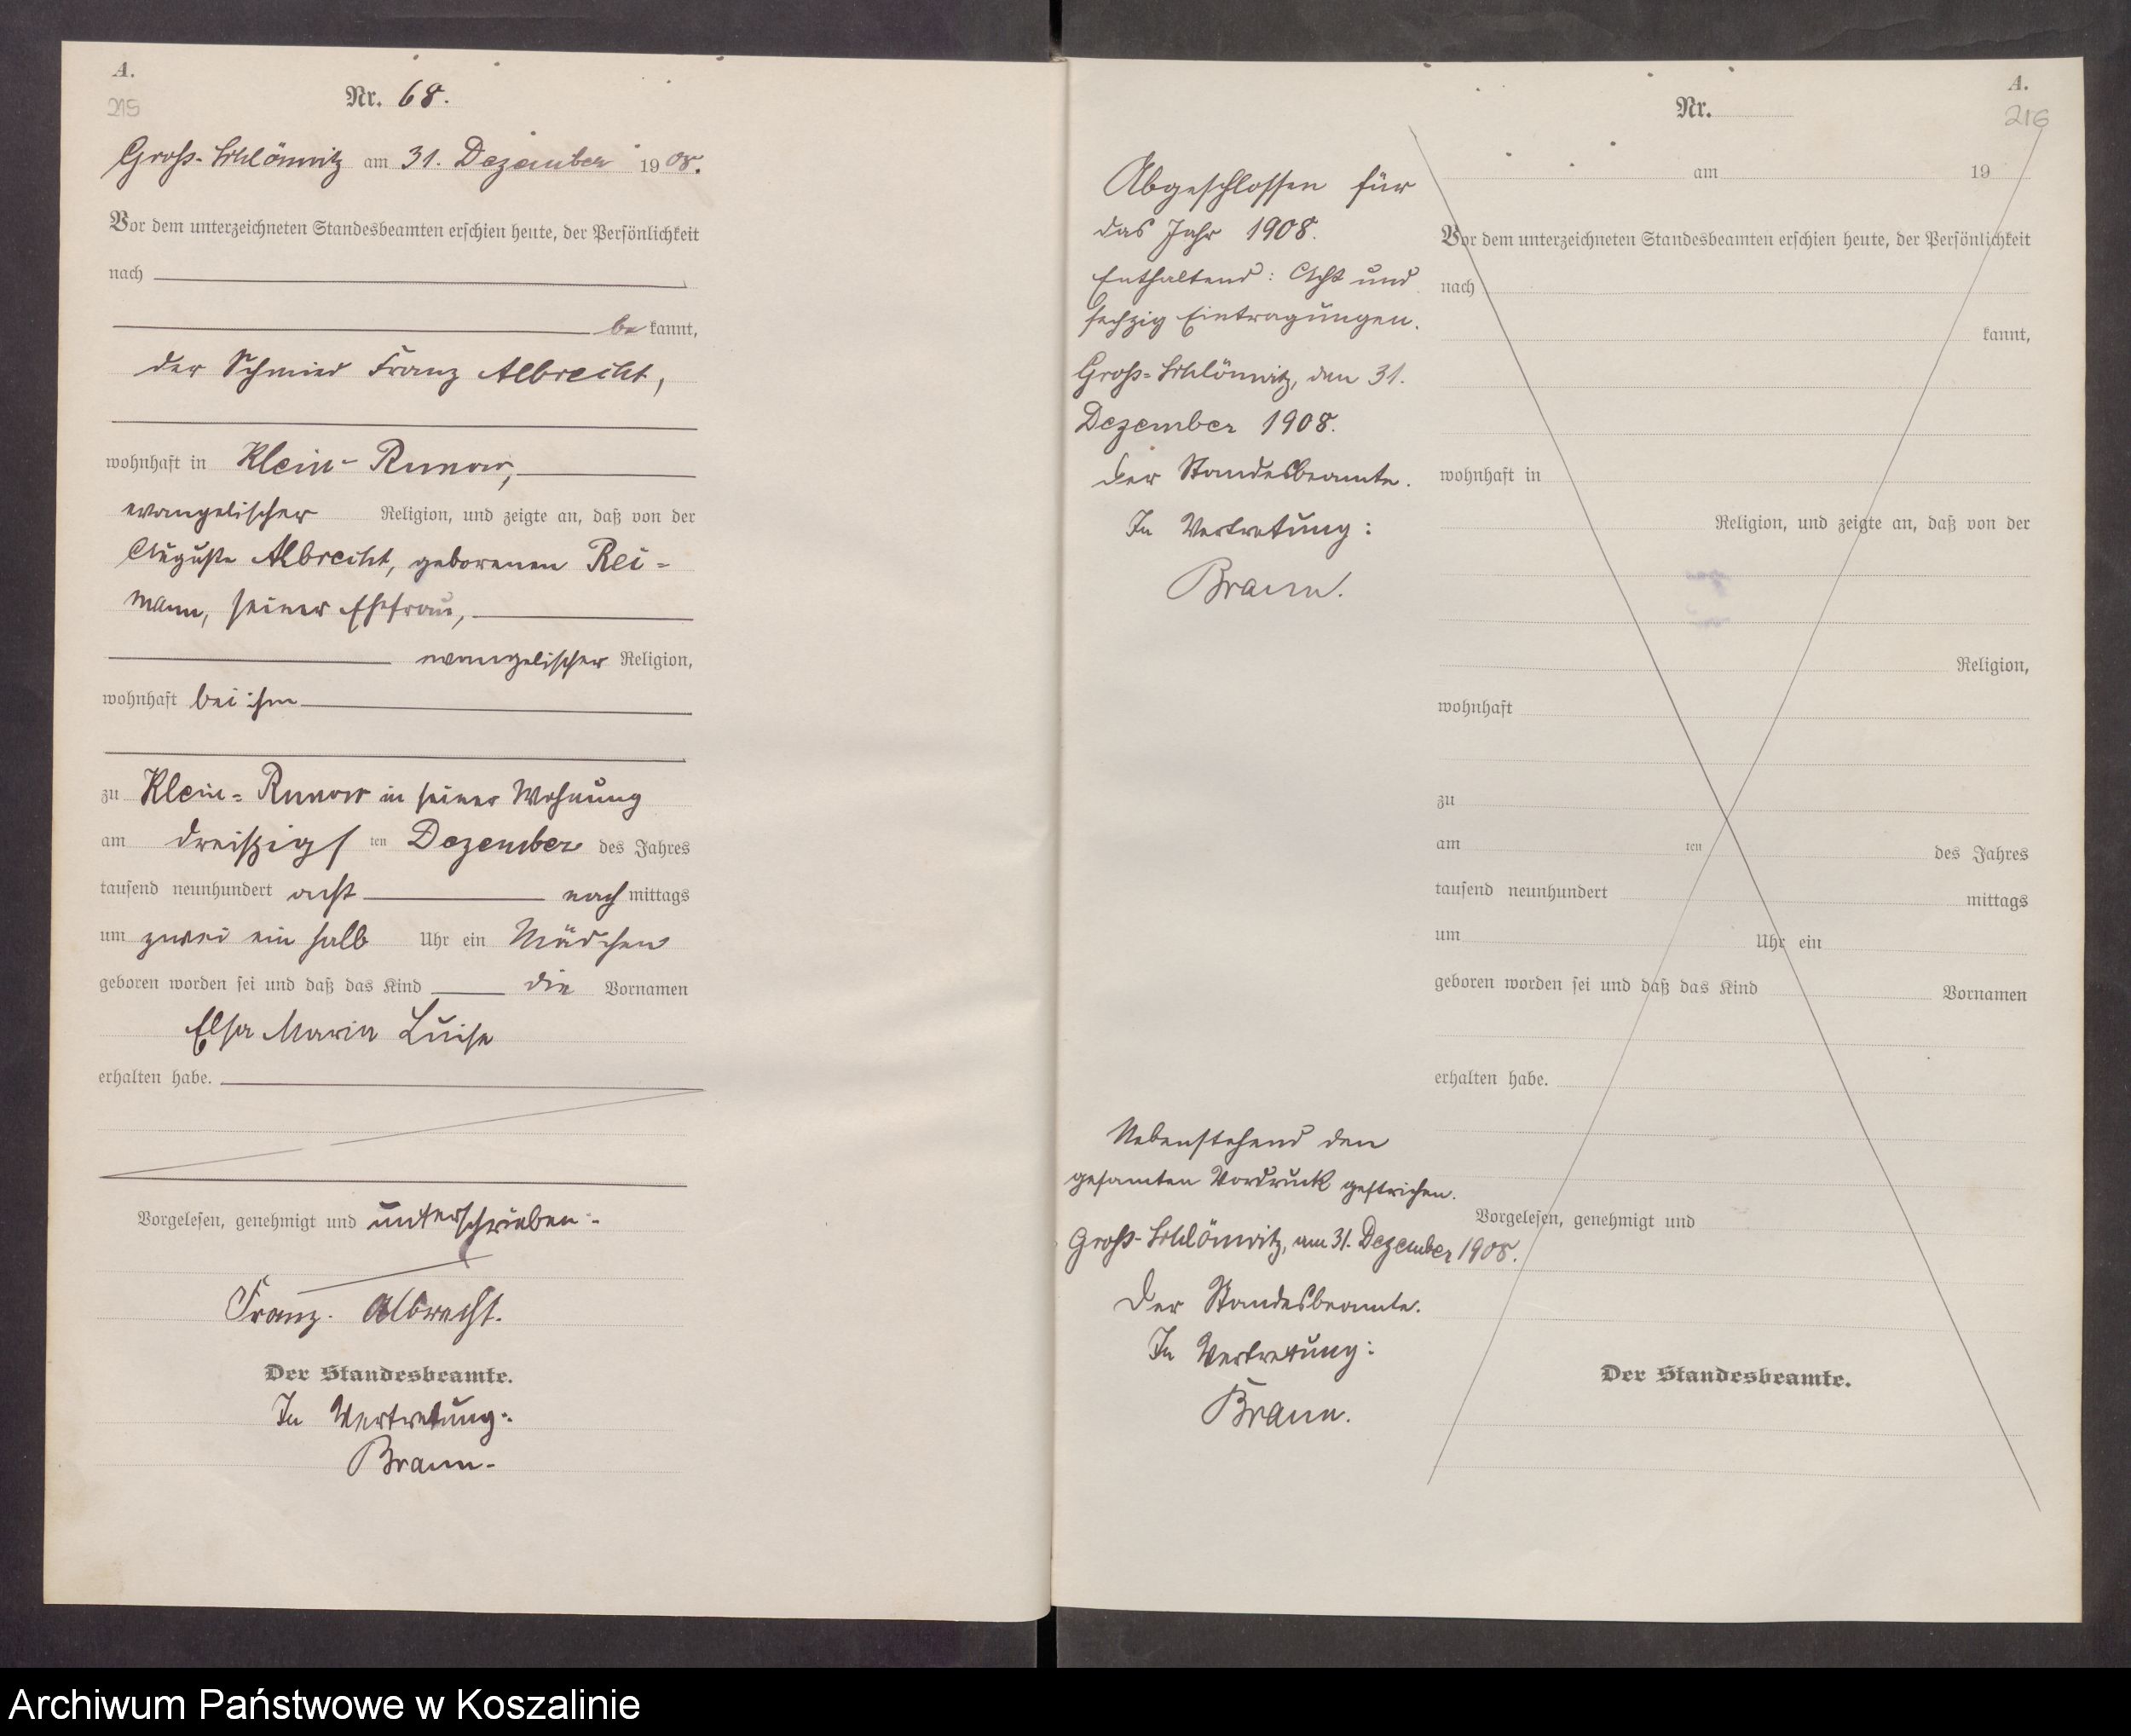 A.
215
Nr. 68.
Groß-Schlönwitz am 31. Dezember 1908.
Vor dem unterzeichneten Standesbeamten erschien heute, der Persönlichkeit
nach
bekannt,
der Schmied Franz Albrecht,
wohnhaft in Klein-Runow,
evangelischer Religion, und zeigte an, daß von der
Auguste Albrecht, geborenen Rei-
mann, seiner Ehefrau,
evangelischer Religion,
wohnhaft bei ihm
zu Klein-Runow in seiner Wohnung
am dreißigsten Dezember des Jahres
tausend neunhundert acht nachmittags
um zwei ein halb Uhr ein Mädchen
geboren worden sei und daß das Kind die Vornamen
Elsa Maria Luise
erhalten habe.
Vorgelesen, genehmigt und unterschrieben:
Franz Albrecht.
Der Standesbeamte.
In Vertretung:
Braun.
A.
216
Nr.
am 19
Abgeschlossen für
das Jahr 1908.
Enthaltend: Acht und
sechzig Eintragungen.
Groß-Schlönwitz, den 31.
Dezember 1908.
Der Standesbeamte.
In Vertretung:
Braun.
Nebenstehend den
gesamten Vordruck gestrichen.
Groß-Schlönwitz, am 31. Dezember 1908.
Der Standesbeamte.
In Vertretung:
Braun.
Vor dem unterzeichneten Standesbeamten erschien heute, der Persönlichkeit
nach
kannt,
wohnhaft in
Religion, und zeigte an, daß von der
Religion,
wohnhaft
zu
am ten des Jahres
tausend neunhundert mittags
um Uhr ein
geboren worden sei und daß das Kind Vornamen
erhalten habe.
Vorgelesen, genehmigt und
Der Standesbeamte.
Archiwum Państwowe w Koszalinie